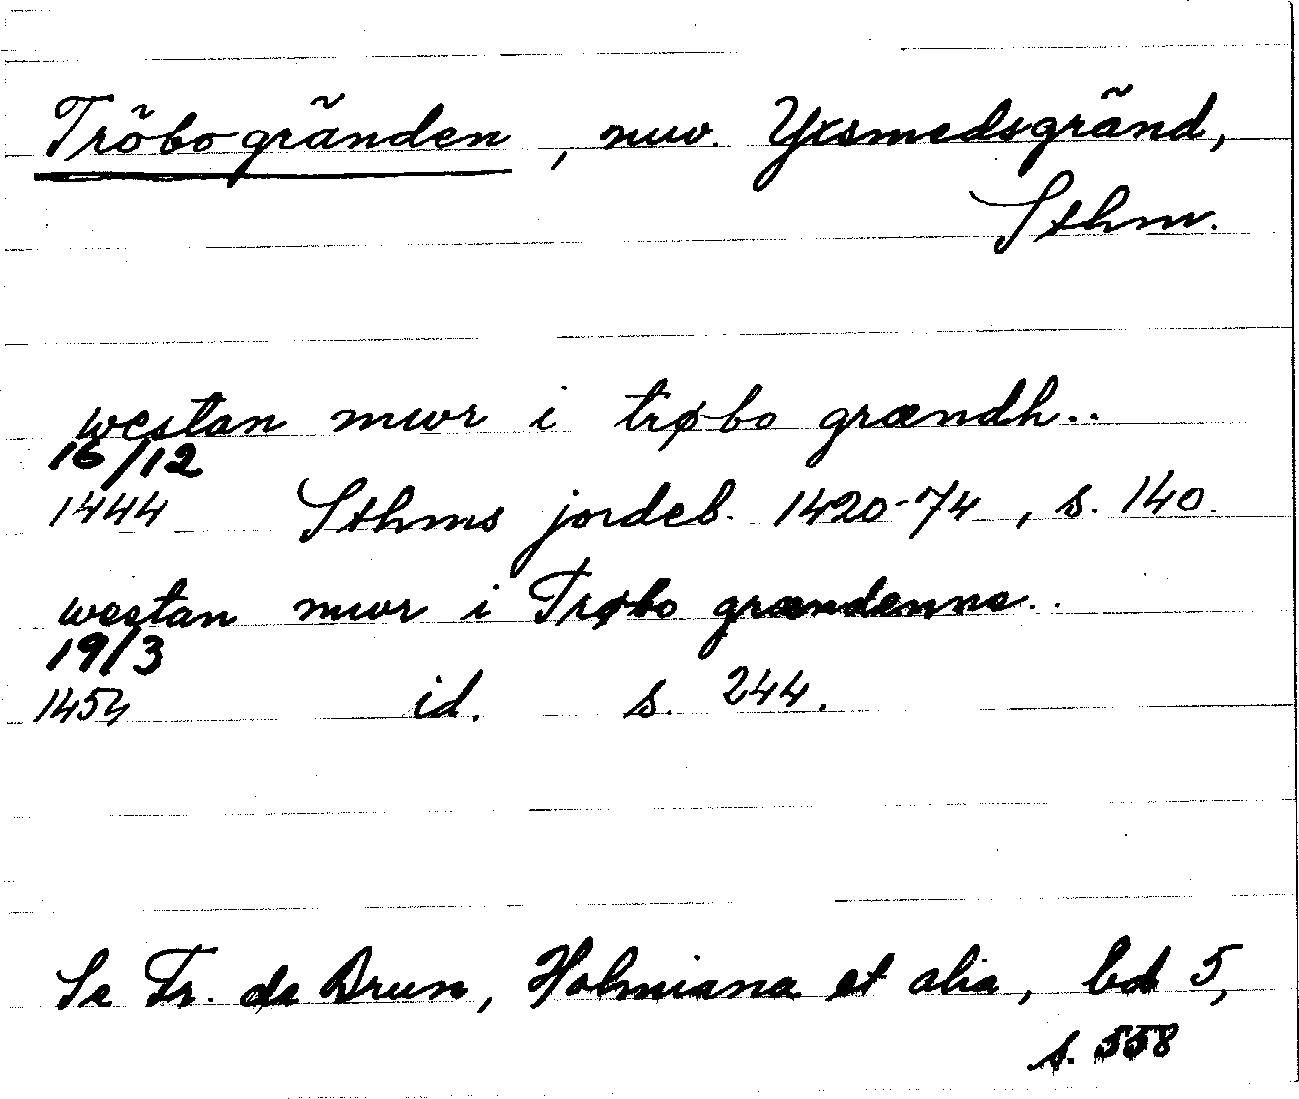 Tröbogränden, nuv. Yxsmedsgränd,
Sthm.
westan mwr i trøbo grændh..
16/12
1444 Sthms jordeb. 1420-74, s. 140.
westan mwr i Trøbo grændenne..
19/3
1454 id. s. 244.
Se Fr. de Brun, Holmiana et alia, bd 5,
s. 558